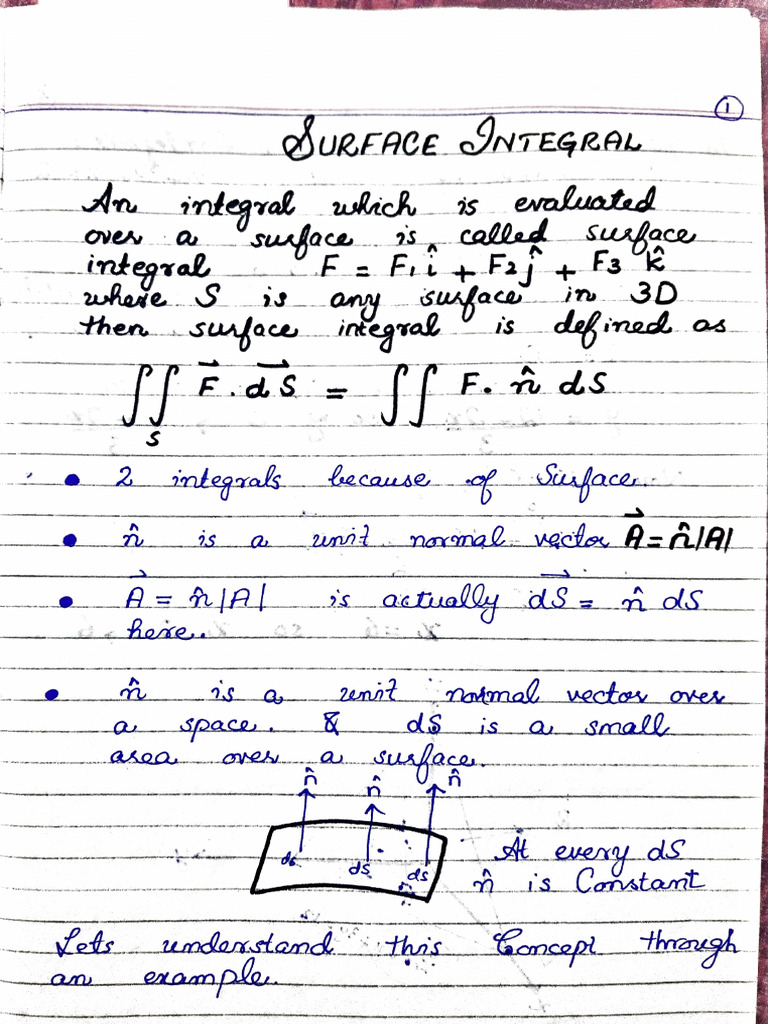 1
SURFACE INTEGRAL
An integral which is evaluated
over a surface is called surface
integral F = F₁ î + F₂ ĵ + F₃ k̂
where S is any surface in 3D
then surface integral is defined as
∬_S F⃗ . dS⃗ = ∬ F. n̂ dS
• 2 integrals because of Surface.
• n̂ is a unit normal vector A⃗ = n̂|A|
• A⃗ = n̂|A| is actually dS⃗ = n̂ dS
here.
• n̂ is a unit normal vector over
a space. & dS is a small
area over a surface.
n̂ n̂ n̂
ds ds ds
At every dS
n̂ is Constant
Lets understand this Concept through
an example.